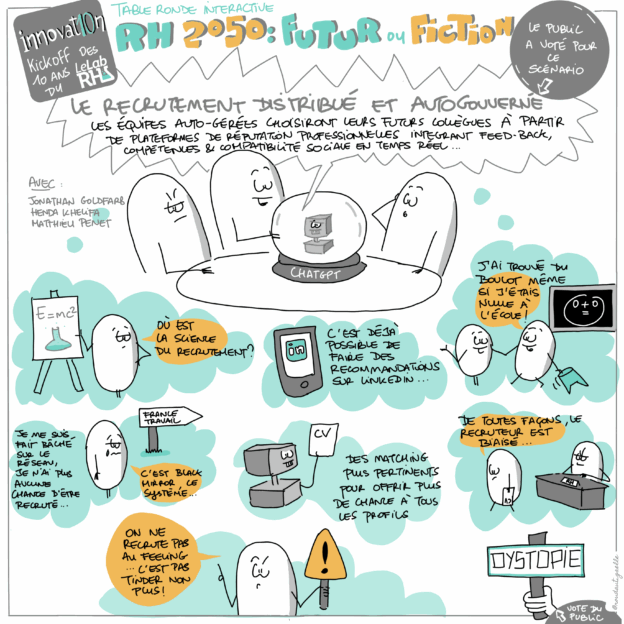 TABLE RONDE INTERACTIVE
RH 2050: FUTUR OU FICTION
innovat10n
KICKOFF DES
10 ANS LeLab
DU RH
LE PUBLIC
A VOTÉ POUR
CE
SCÉNARIO
LE RECRUTEMENT DISTRIBUÉ ET AUTOGOUVERNÉ
LES ÉQUIPES AUTO-GÉRÉES CHOISIRONT LEURS FUTURS COLLÈGUES À PARTIR
DE PLATEFORMES DE RÉPUTATION PROFESSIONNELLES INTÉGRANT FEED-BACK,
COMPÉTENCES & COMPATIBILITÉ SOCIALE EN TEMPS RÉEL...
AVEC :
JONATHAN GOLDFARB
HENDA KHELIFA
MATTHIEU PENET
CHATGPT
E=mc²
OÙ EST
LA SCIENCE
DU RECRUTEMENT?
in
C'EST DÉJÀ
POSSIBLE DE
FAIRE DES
RECOMMANDATIONS
SUR LINKEDIN...
J'AI TROUVÉ DU
BOULOT MÊME
SI J'ÉTAIS
NULLE À
L'ÉCOLE!
0+0
=
JE ME SUIS
FAIT BÂCHÉ
SUR LE
RÉSEAU,
JE N'AI PLUS
AUCUNE
CHANCE D'ÊTRE
RECRUTÉ...
FRANCE
TRAVAIL
C'EST BLACK
MIRROR CE
SYSTÈME...
CV
DES MATCHING
PLUS PERTINENTS
POUR OFFRIR PLUS
DE CHANCE À TOUS
LES PROFILS
DE TOUTES FAÇONS, LE
RECRUTEUR EST
BIAISÉ...
RH
ON NE
RECRUTE PAS
AU FEELING
... C'EST PAS
TINDER NON
PLUS!
!
DYSTOPIE
VOTE DU
PUBLIC